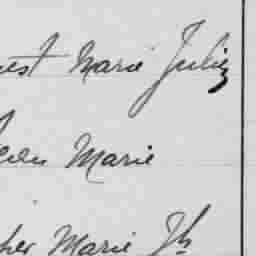 est Marie Julie
Marie
her Marie Jh